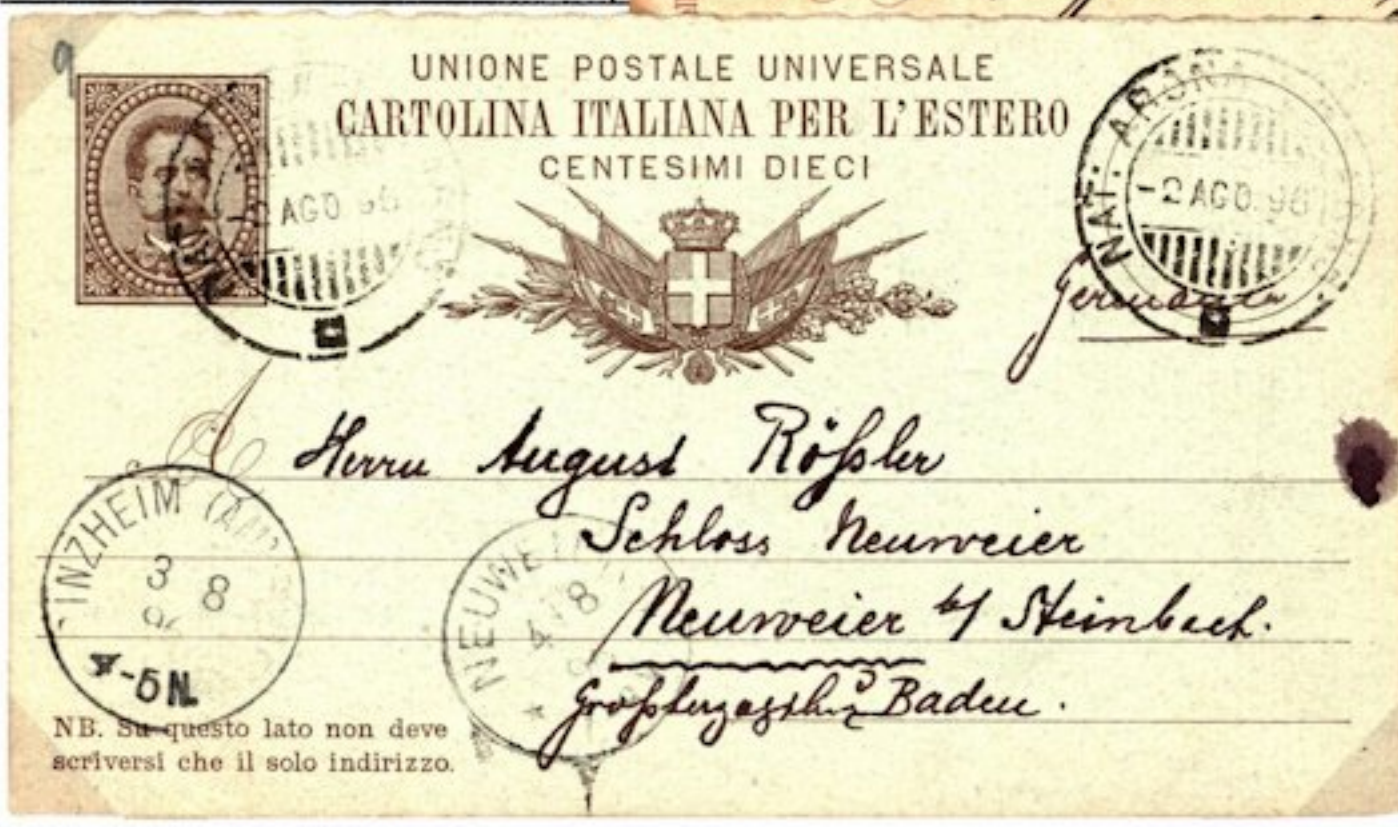 UNIONE POSTALE UNIVERSALE
CARTOLINA ITALIANA PER L'ESTERO
CENTESIMI DIECI
NAT: ARONA
-2 AGO 96
AGO 96
Germania
Herrn August Rößler
Schloss Neuweier
Neuweier b/ Steinbach.
Großherzogth. Baden.
INZHEIM (Am
3 8
-5 N.
NEUWE
4 8
NB. Su questo lato non deve
scriversi che il solo indirizzo.